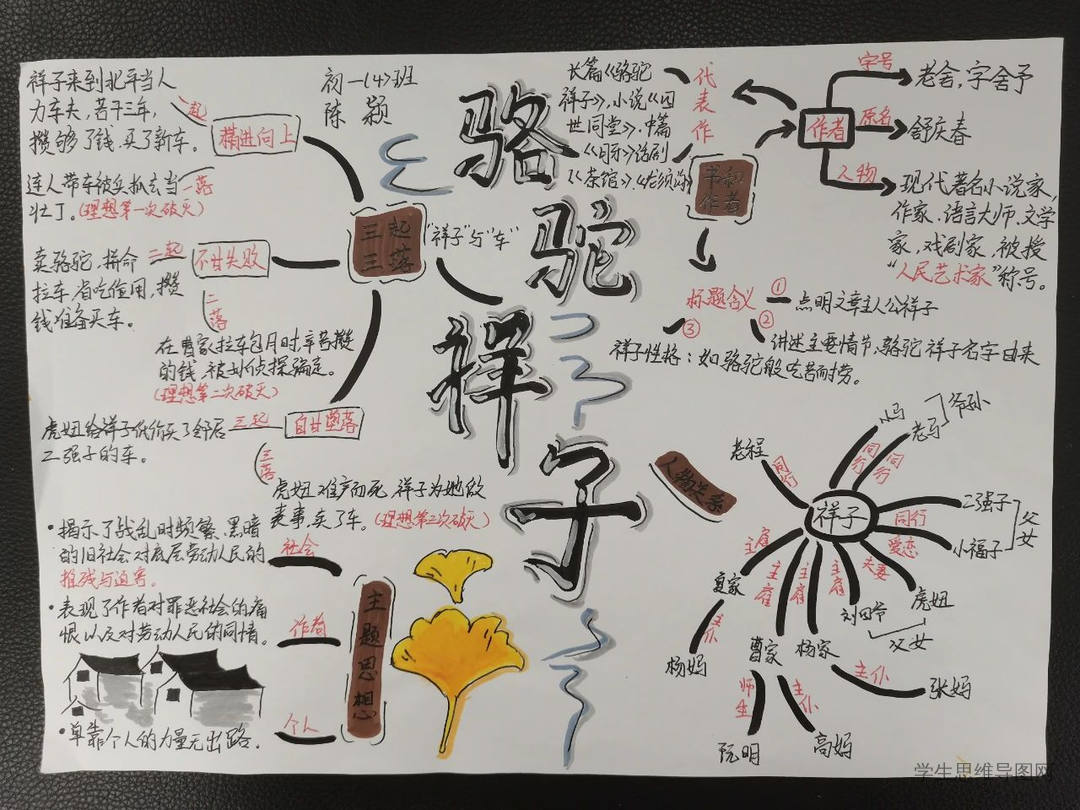 骆驼祥子
初一(4)班
陈颖
三起
三落
"祥子"与"车"
横进向上
一起
祥子来到北平当人
力车夫,苦干三年,
攒够了钱,买了新车。
一落
连人带车被
去当
壮丁。(理想第一次破灭)
不甘失败
二起
卖骆驼,拼命
拉车,省吃俭用,攒
钱准备买车。
二落
在曹家拉车包月时,辛苦攒
的钱,被
侦探骗走。
(理想第二次破灭)
自甘堕落
三起
虎妞给祥子低价买了邻居
二强子的车。
三落
虎妞难产而死,祥子为她做
丧事,卖了车。(理想第三次破灭)
主题思想
社会
·揭示了战乱时频繁、黑暗
的旧社会对底层劳动人民的
摧残与迫害。
作者
·表现了作者对罪恶社会的痛
恨以及对劳动人民的同情。
个人
·单靠个人的力量无出路.
书和
作者
代表作
长篇《骆驼
祥子》,小说《四
世同堂》.中篇
《月牙》话剧
《茶馆》《龙须沟》
作者
字号
老舍,字舍予
原名
舒庆春
人物
现代著名小说家,
作家、语言大师、文学
家,戏剧家,被授
"人民艺术家"称号。
标题含义
①
点明文章主人公祥子
②
讲述主要情节,骆驼祥子名字由来
③
祥子性格:如骆驼般吃苦耐劳。
人物关系
祥子
老程
同行
小马
同行
老马
同行
爷孙
二强子
同行
小福子
爱恋
父女
虎妞
夫妻
刘四爷
主雇
父女
杨家
主雇
主仆
张妈
曹家
主雇
师生
阮明
主仆
高妈
夏家
主雇
主仆
杨妈
学生思维导图网